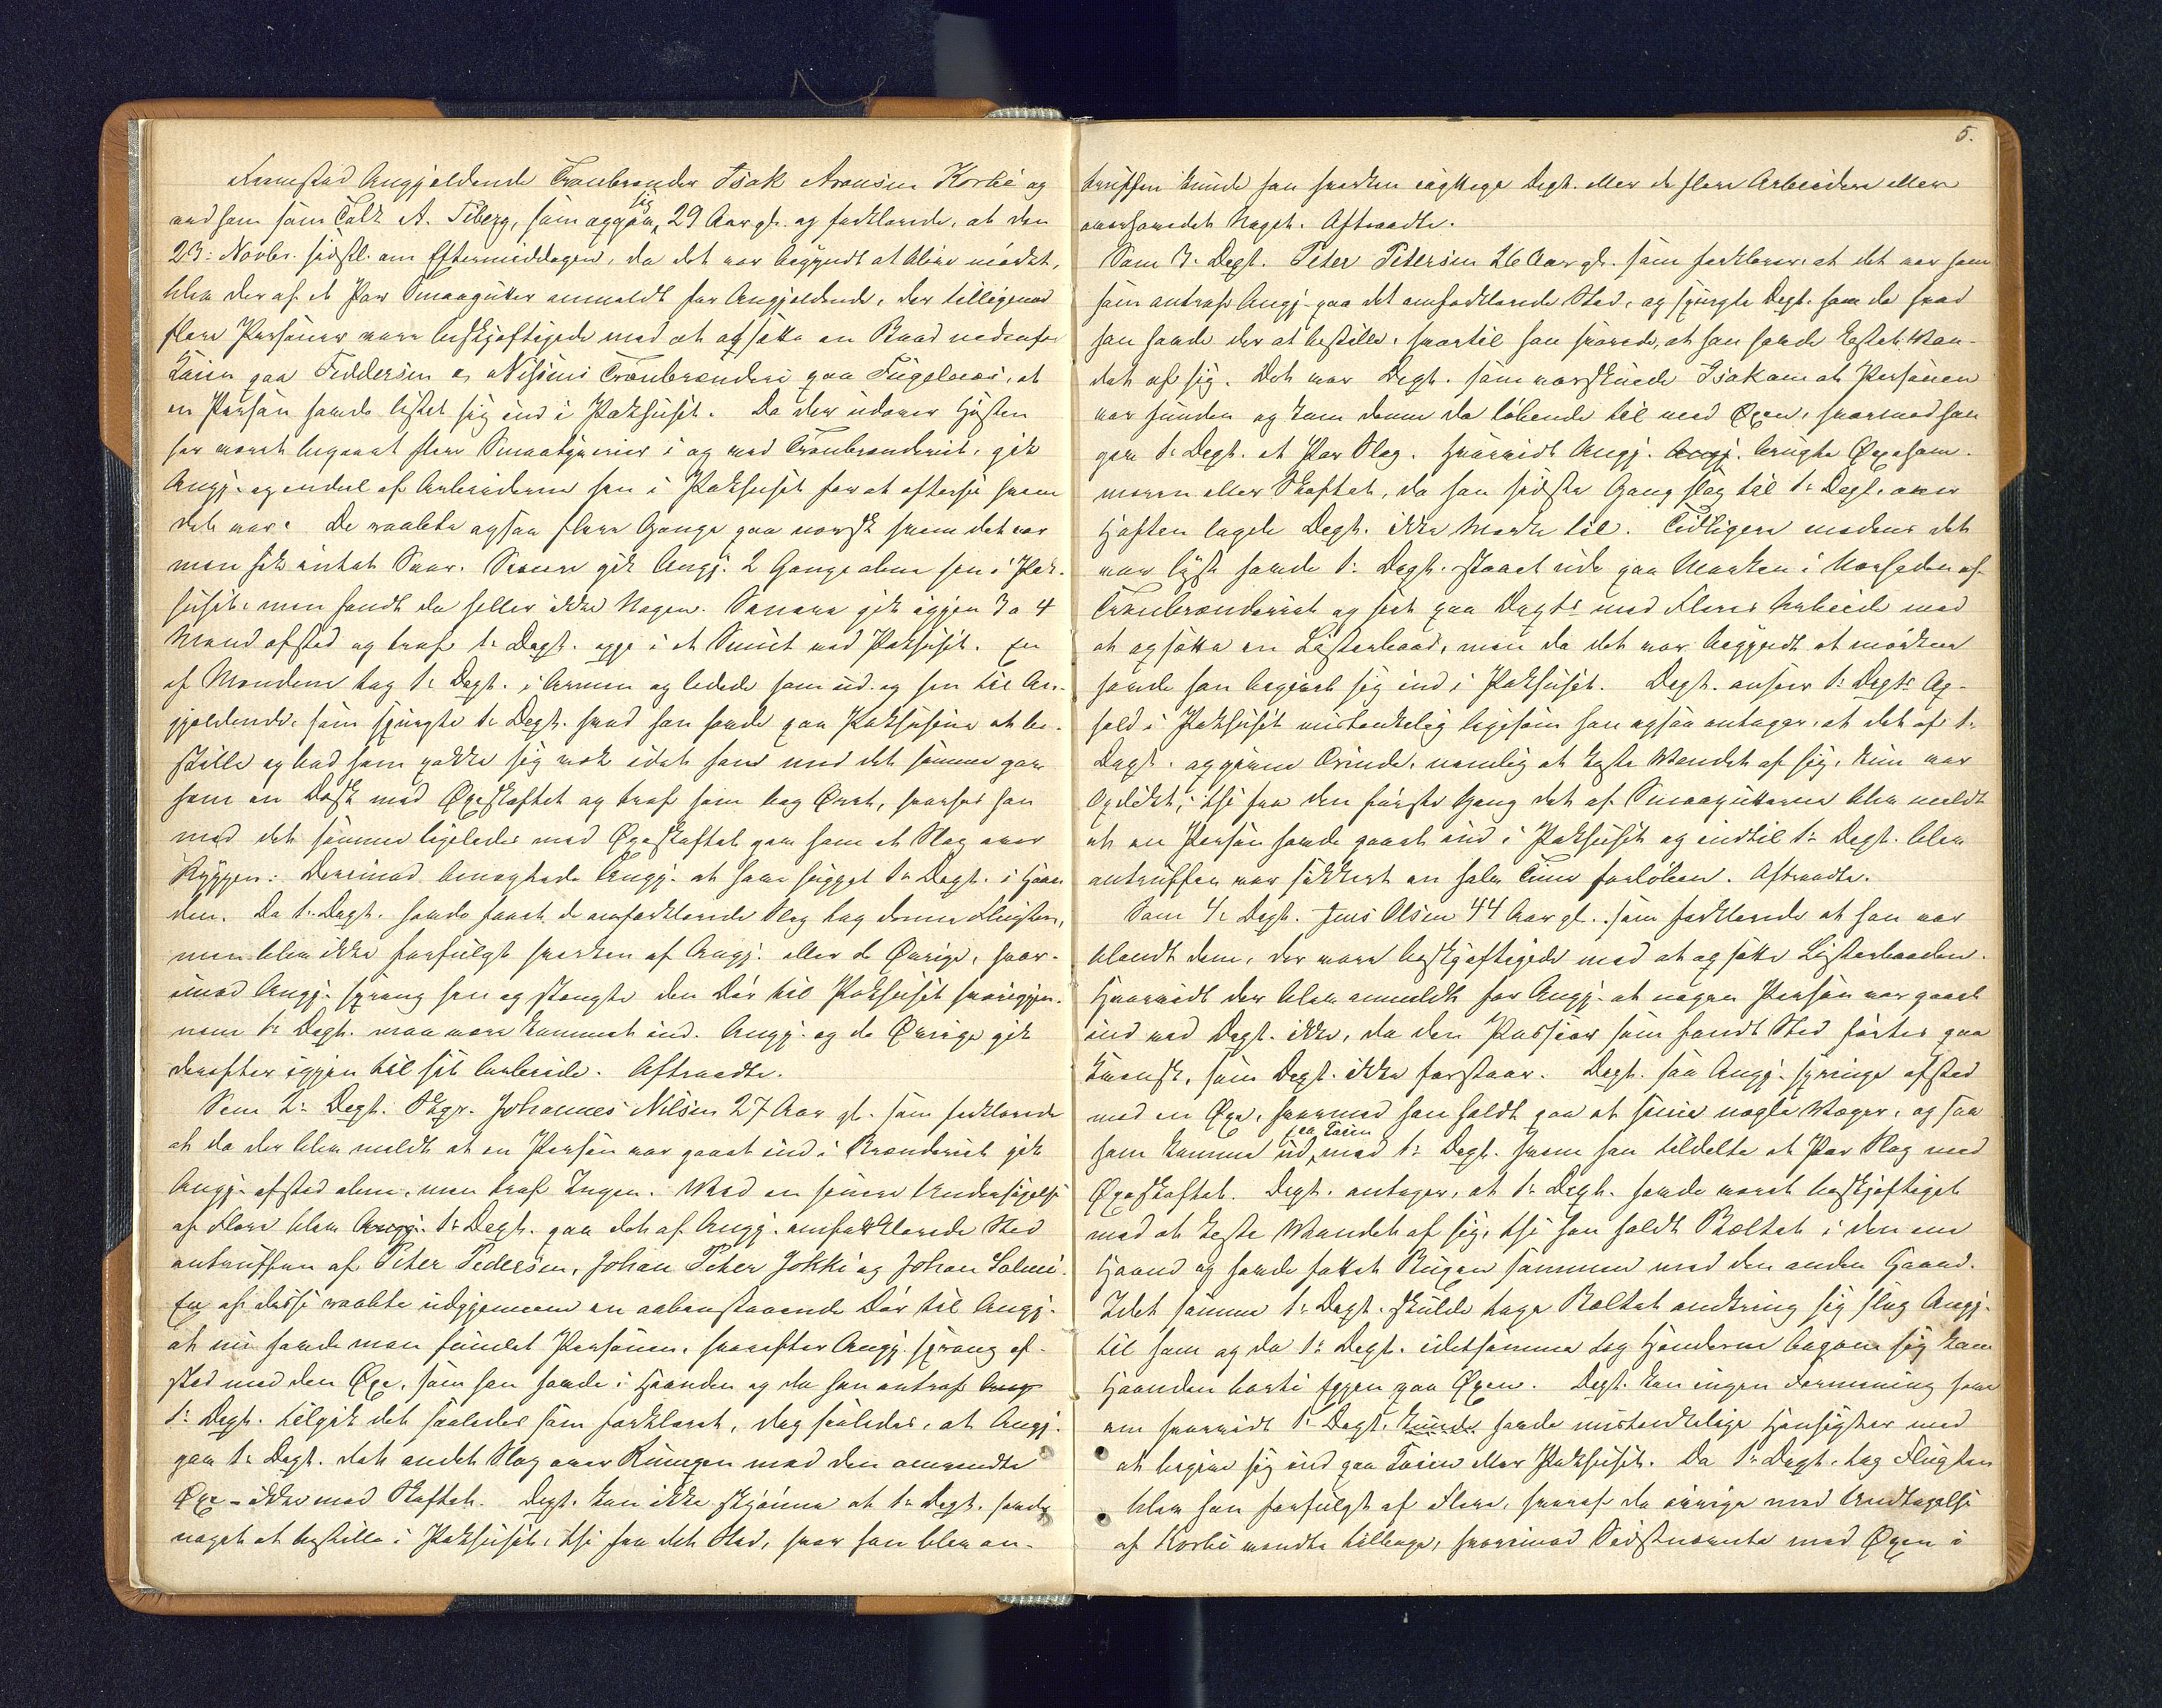 Fremstod Angjældende Tranbrænder Isak Aronsen Korbi og
ved ham som Tolk A. Tiberg, som opgav sig 29 Aar gl. og forklarede, at den
23: Novbr. sidstl. om Eftermiddagen, da det var begyndt at blive mørkt,
blev der af et Par Smaagutter anmeldt for Angjældende, der tilligemed
flere Personer vare beskjæftigede med at opsætte en Baad nedenfor
Kaien paa Feddersen & Nissens Tranbrænderi paa Fuglenæs, at
en Person havde listet sig ind i Pakhuset. Da der udover Høsten
har været begaaet flere Smaatyverier i og ved Tranbrænderiet, gik
Angj. og endel af Arbeiderne hen i Pakhuset for at eftersee hvem
det var. De raabte ogsaa flere Gange paa norsk hvem det var
men fik intet Svar. Senere gik Angj. 2 Gange alene hen i Pak-
huset, men fandt da heller ikke Nogen. Senere gik igjen 3 a 4
Mand afsted og traf 1: Dept. oppe i et Smut ved Pakhuset. En
af Mændene tog 1: Dept. i Armen og ledede ham ud og hen til An-
gjældende, som spurgte 1: Dept. hvad han havde paa Pakhusene at be-
stille og bad ham pakke sig væk idet han med det samme gav
ham en Dask med Øxeskaftet og traf ham bag Øret, hvorpaa han
med det samme ligeledes med Øxeskaftet gav ham et Slag over
Ryggen. Derimod benegtede Angj. at have hugget 1: Dept. i Haan
den. Da 1: Dept. havde faaet de omforklarede Slag tog denne Flugten,
men blev ikke forfulgt hverken af Angj. eller de Øvrige, hvor-
imod Angj. sprang hen og stængte den Dør til Pakhuset hvorigjen-
nem 1: Dept. maa være kommet ind. Angj. og de Øvrige gik
derefter igjen til sit Arbeide. Aftraadte.
Som 2: Dept. Skpr. Johannes Nilsen 27 Aar gl. som forklarede
at da der blev meldt at en Person var gaaet ind i Brænderiet gik
Angj. afsted alene, men traf Ingen. Ved en senere Undersøgelse
af Flere blev Angj. 1: Dept. paa det af Angj. omforklarede Sted
antruffen af Peter Pedersen, Johan Peter Jokki og Johan Salmi.
En af disse raabte udgjennem en aabenstaaende Dør til Angj.
at nu havde man fundet Personen, hvorefter Angj. sprang af-
sted med den Øxe, som han havde i Haanden og da han antraf Ang
1: Dept. tilgik det saaledes som forklaret, dog saaledes, at Angj.
gav 1: Dept. det andet Slag over Rumpen med den omvendte
Øxe – ikke med Skaftet. Dept. kan ikke skjønne at 1: Dept. havde
noget at bestille i Pakhuset, thi fra det Sted, hvor han blev an-
5.
truffen kunde han hverken iagttage Dept. eller de flere Arbeidere eller
overhovedet Noget. Aftraadte.
Som 3: Dept. Peter Petersen 26 Aar gl. som forklarer at det var ham
som antraf Angj. paa det omforklarede Sted, og spurgte Dept. ham da hvad
han havde der at bestille, hvortil han svarede, at han havde kastet Van-
det af sig. Det var Dept. som varskuede Isak om at Personen
var funden og kom denne da løbende til med Øxen, hvormed han
gav 1: Dept. et Par Slag. Hvorvidt Angj. Angj. brugte Øxeham-
meren eller Skaftet, da han sidste Gang slog til 1: Dept. over
Hoften lagde Dept. ikke Mærke til. Tidligere medens det
var lyst havde 1: Dept. staaet ude paa Marken i Nærheden af
Tranbrænderiet og seet paa Depts med Fleres Arbeide med
at opsætte en Listerbaad, men da det var begyndt at mørkne
havde han begivet sig ind i Pakhuset. Dept. anser 1: Depts Op-
hold i Pakhuset mistænkelig ligesom han ogsaa antager, at det af 1:
Dept. opgivne Ærinde, nemlig at kaste Vandet af sig, kun var
opdiktet; thi fra den første Gang det af Smaagutterne blev meldt
at en Person havde gaaet ind i Pakhuset og indtil 1: Dept. blev
antruffen var sikkert en halv Time forløben. Aftraadte.
Som 4: Dept. Jens Olsen 44 Aar gl. som forklarede at han var
blandt dem, der vare beskjæftigede med at opsætte Listerbaaden.
Hvorvidt der blev anmeldt for Angj. at nogen Person var gaaet
ind ved Dept. ikke, da den Passiar som fandt Sted førtes paa
kvænsk, som Dept. ikke forstaar. Dept. saa Angj. springe afsted
med en Øxe, hvormed han holdt paa at smie nogle Væger, og saa
ham komme ud paa Kaien med 1: Dept. hvem han tildelte et Par Slag med
Øxeskaftet. Dept. antager, at 1: Dept. havde været beskjæftiget
med at kaste Vandet af sig, thi han holdt Bæltet i den ene
Haand og havde fattet Buxen sammen med den anden Haand.
Idet samme 1: Dept. skulde tage Bæltet omkring sig slog Angj.
til ham og da 1: Dept. idetsamme tog Hænderne bagom sig kom
Haanden borti Eggen paa Øxen. Dept. kan ingen Formening have
om hvorvidt 1: Dept. kunde havde mistænkelige Hensigter med
at begive sig ind paa Kaien eller Pakhuset. Da 1: Dept. tog Flugten
blev han forfulgt af Flere, hvoraf de øvrige med Undtagelse
af Korbi vendte tilbage, hvorimod Sidstnævnte med Øxen i